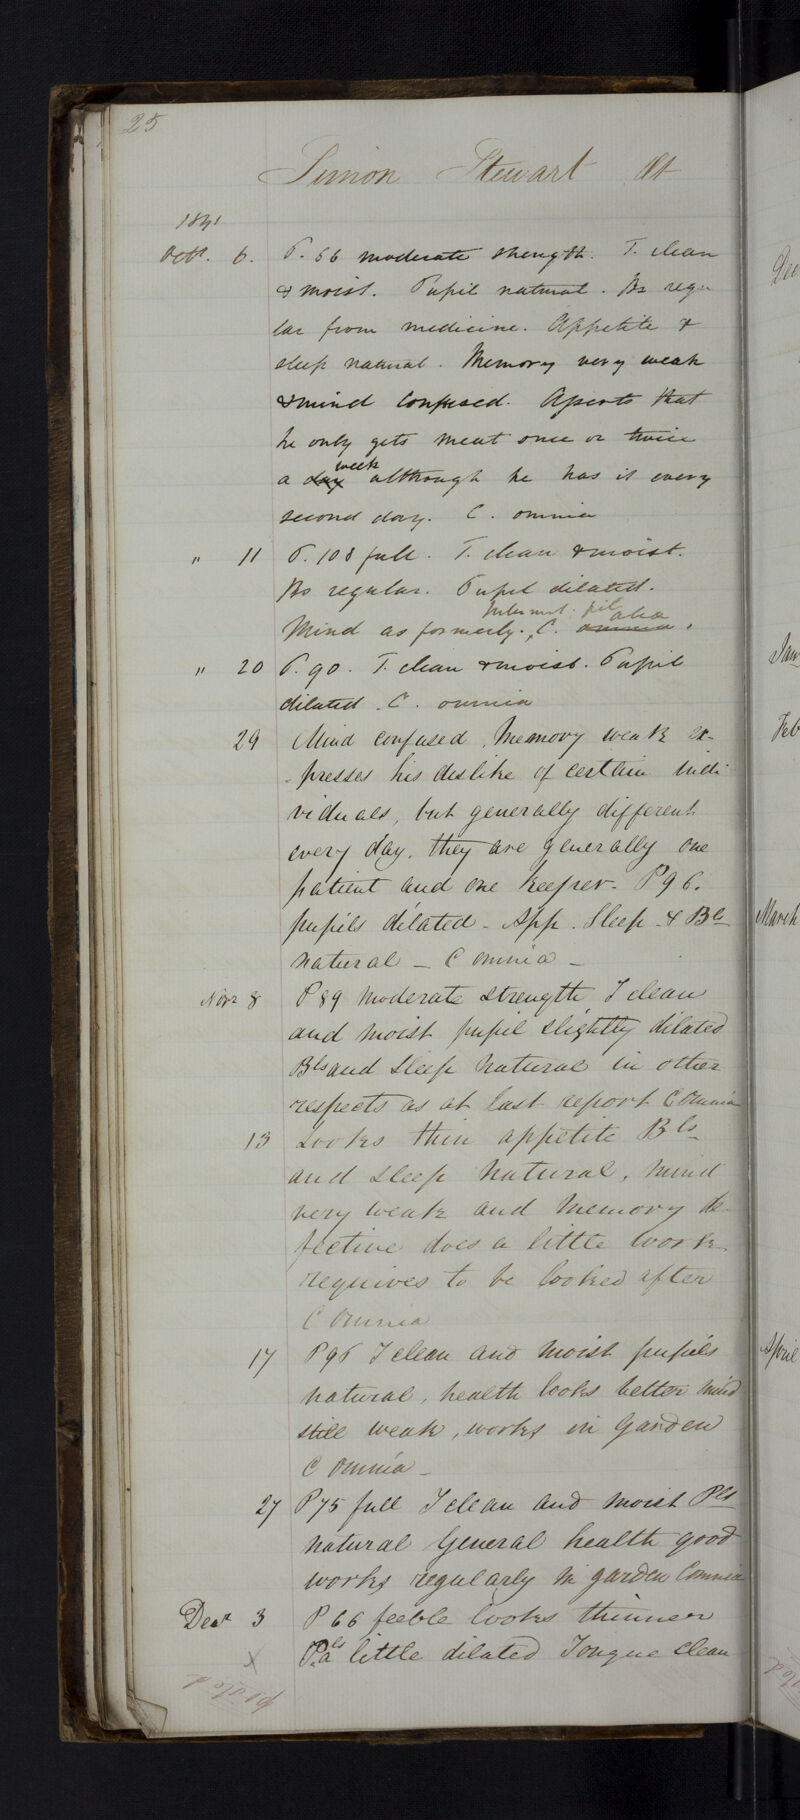 25
Simon Stewart
1841
Octr. 6. P. 66 moderate strength. T. clean
& moist. Pupil natural. Bs regu
lar from medicine. Appetite &
sleep natural. Memory very weak
& mind confused. Asserts that
he only gets meat once or twice
a day week although he has it every
second day. C. omnia
" 11 P. 108 full. T. clean & moist.
Bs regular. Pupil dilated.
Mind as formerly. C. omnia. alia
" 20 P. 90. T. clean & moist. Pupil
dilated. C. omnia
29 Mind confused, memory weak ex-
-presses his dislike of certain indi
viduals, but generally different
every day. they are generally one
patient and one keeper. P 96.
pupils dilated - App. Sleep - & Bls
natural - C omnia -
Novr 8 P 89 moderate strength T clean
and moist pupil slightly dilated
Bls and sleep natural in other
respects as at last report C Omnia
13 Looks thin appetite Bls
and sleep natural, mind
very weak and memory de
fective does a little work
requires to be looked after
C Omnia
17 P 96 T clean and moist pupils
natural, health looks better mind
still weak, works in garden
C Omnia -
27 P 75 full T clean and moist Pls
natural General health good
works regularly in garden C omnia
Decr 3 P 66 feeble looks thinner
Pls a little dilated Tongue clean
x
posted
Dec
Jan
Feb
March
April